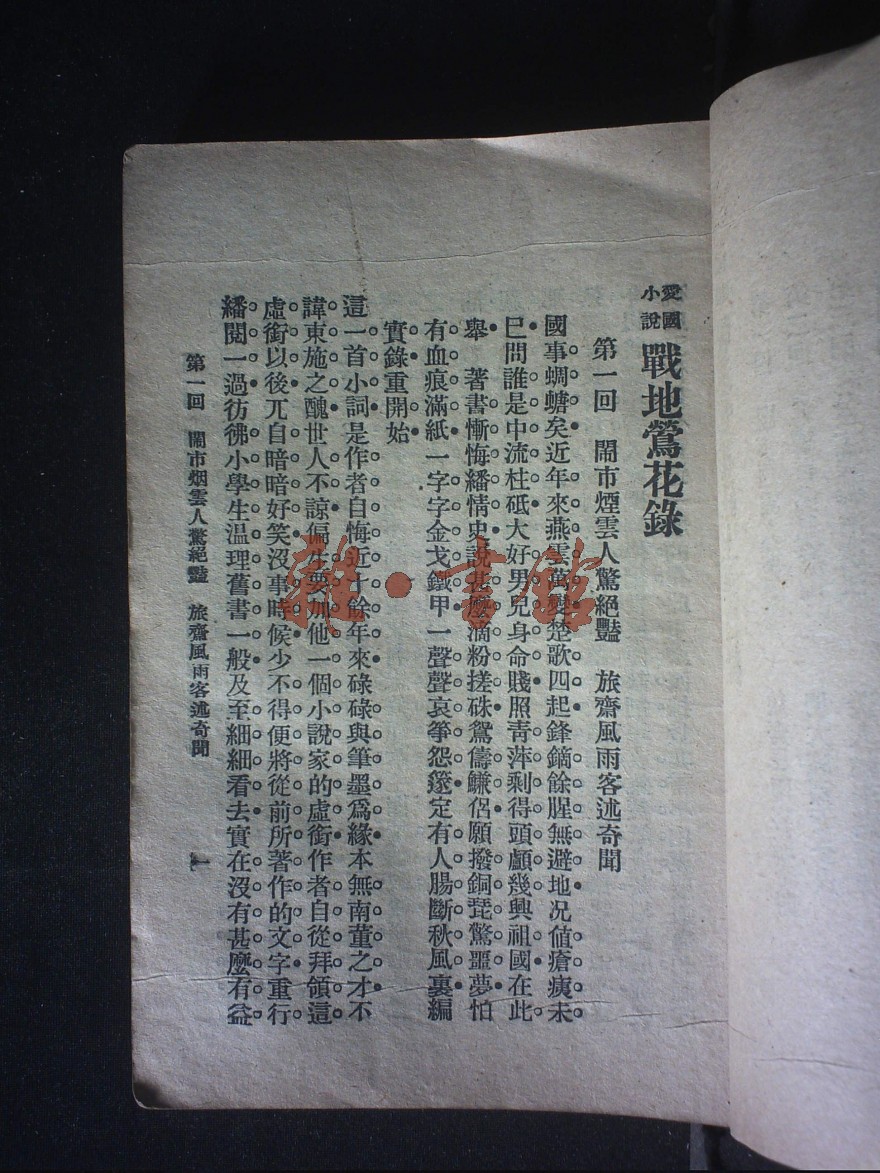 愛國小說
戰地鶯花錄
第一回　鬧市煙雲人驚絕豔　旅齋風雨客述奇聞
國事蜩螗矣近年來燕雲萬變楚歌四起鋒鏑餘腥無避地况値瘡痍未
巳問誰是中流柱砥大好男兒身命賤照靑萍剩得頭顱幾興祖國在此
舉　著書慚悔繙情史說甚麽滴粉搓硃鴛儔鰜侶願撥銅琵驚噩夢怕
有血痕滿紙一字字金戈鐵甲一聲聲哀筝怨篴定有人腸斷秋風裏編
實錄重開始
這一首小詞是作者自悔近十餘年來碌碌與筆墨爲緣本無南董之才不
諱東施之醜世人不諒偏生要加他一個小說家的虛銜作者自從拜領這
虛銜以後兀自暗暗好笑沒事時候少不得便將從前所著作的文字重行
繙閱一過彷彿小學生溫理舊書一般及至細細看去實在沒有甚麽有益
第一回　鬧市烟雲人驚絕豔　旅齋風雨客述奇聞
一
雜·書館